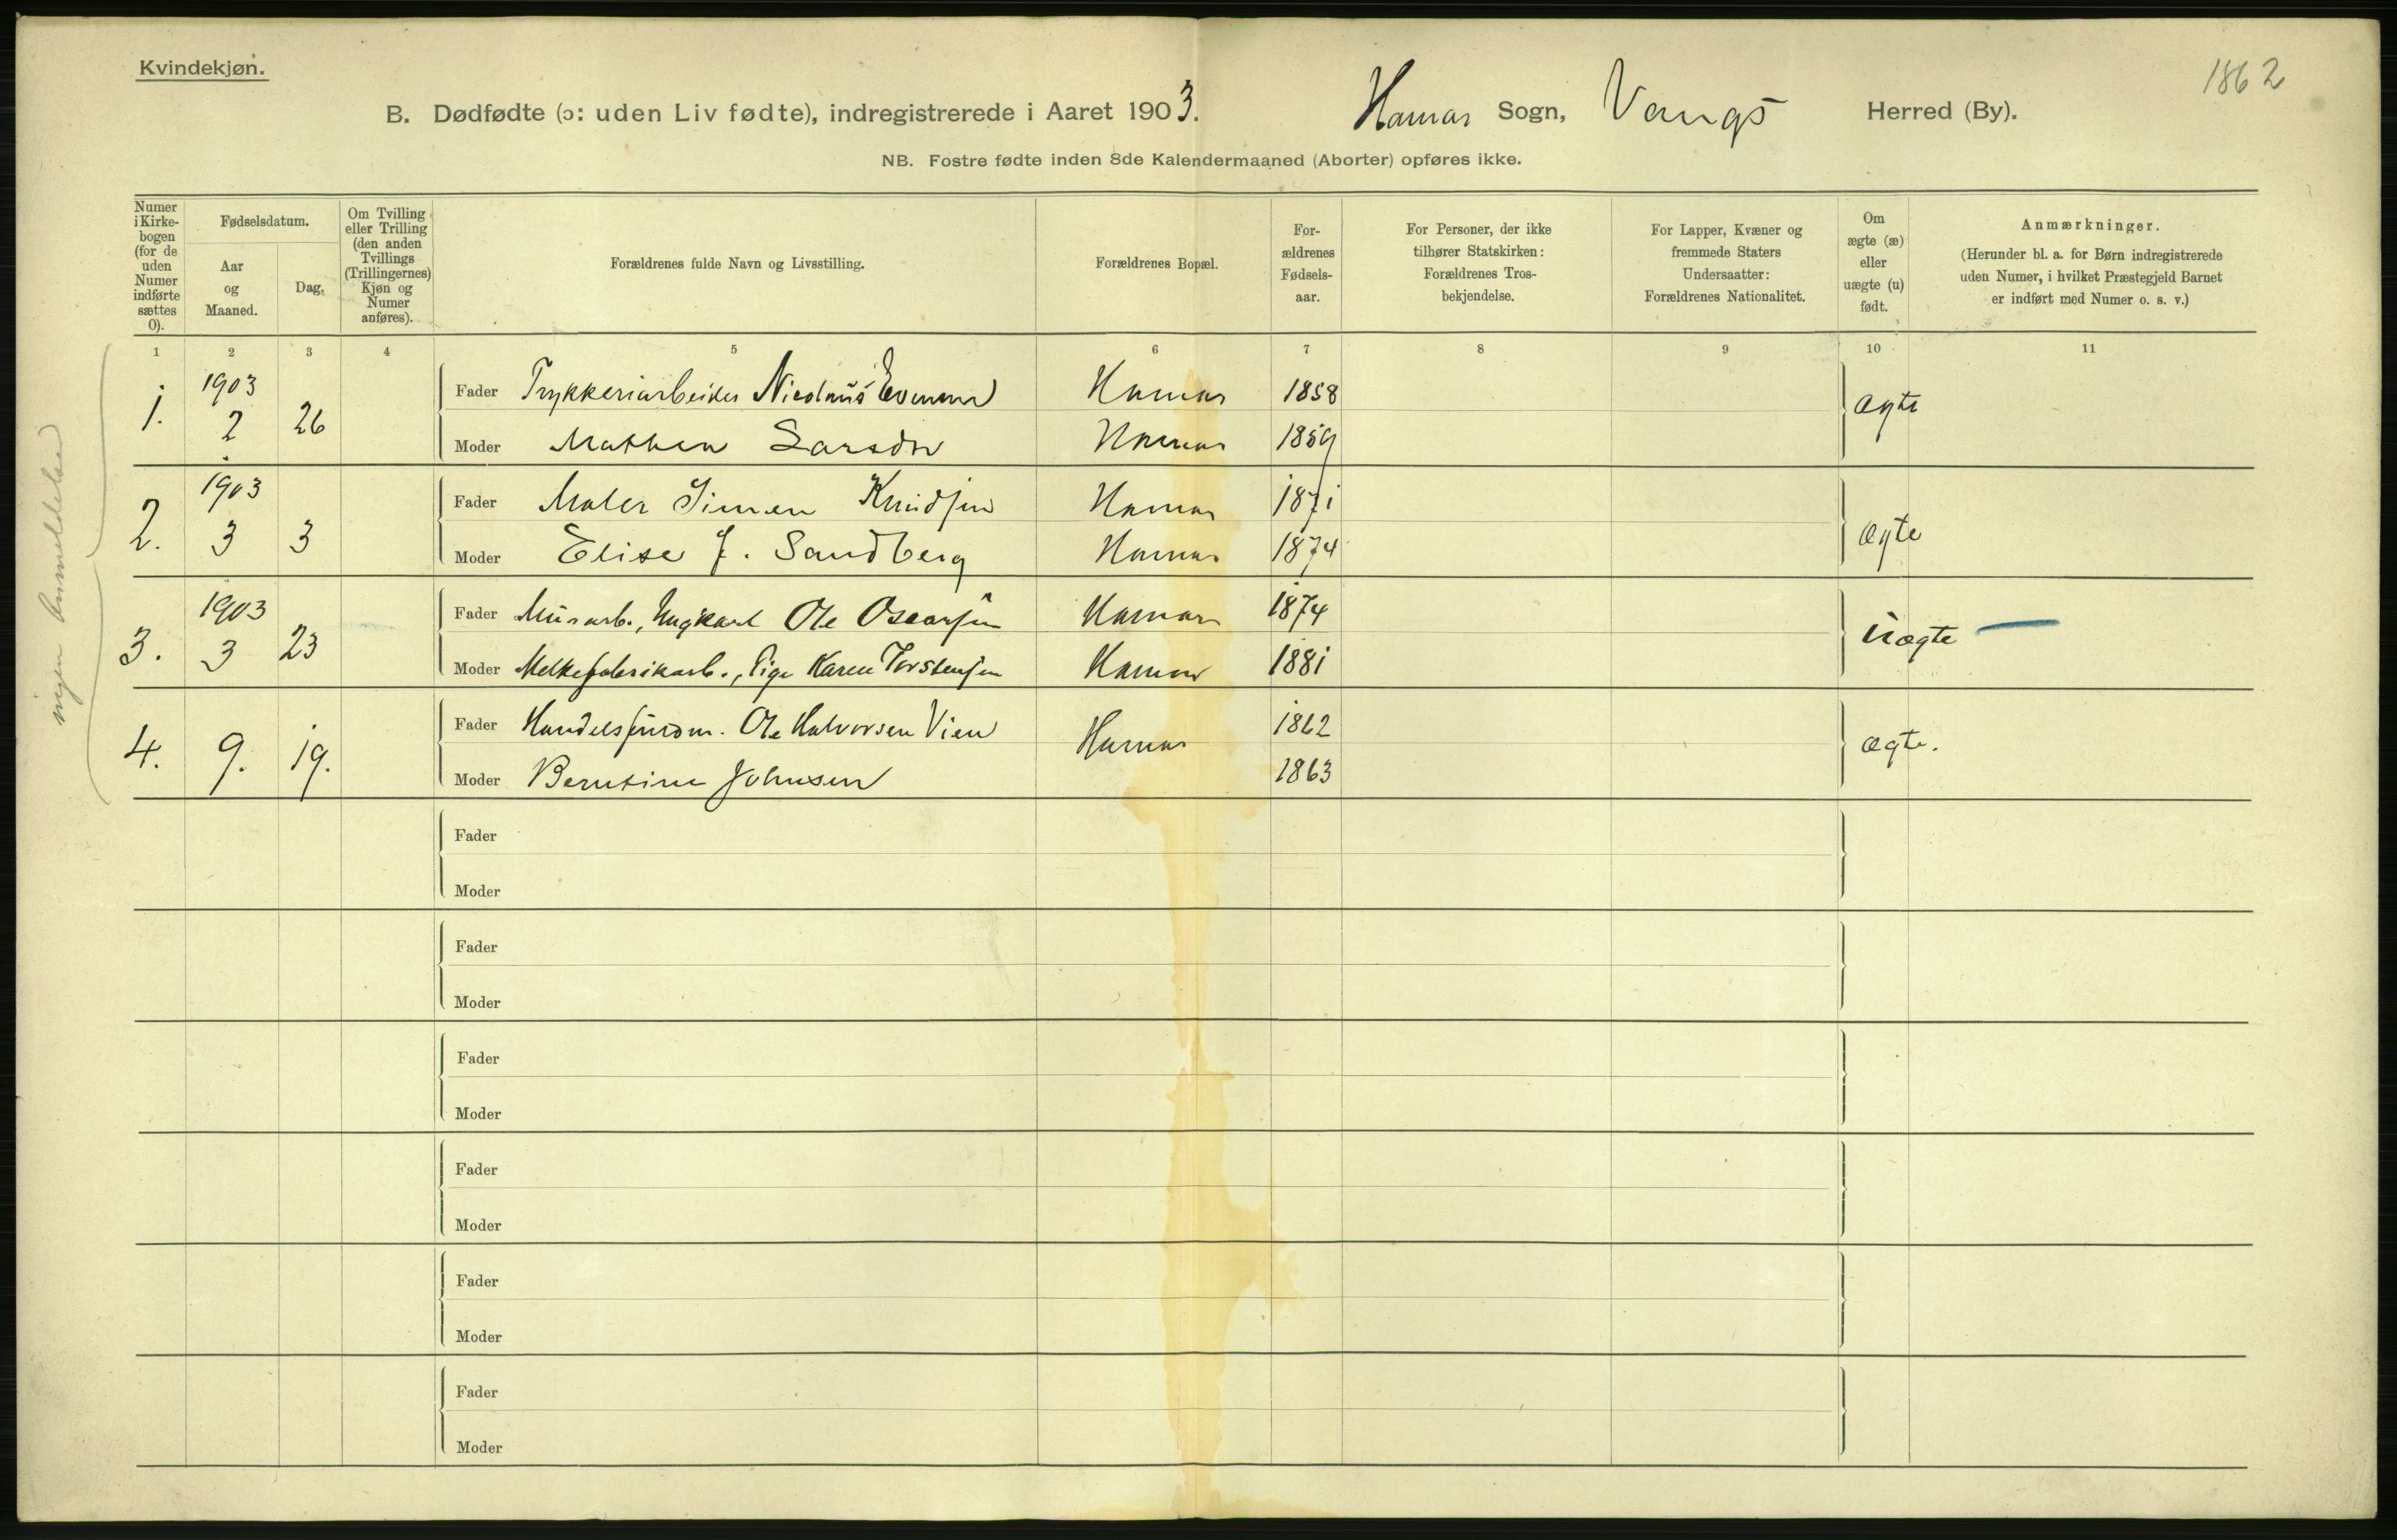 Kvindekjøn.
1862
B. Dødfødte (ɔ: uden Liv fødte), indregistrerede i Aaret 1903. Hamar Sogn, Vangs Herred (By).
NB. Fostre fødte inden 8de Kalendermaaned (Aborter) opføres ikke.
Numer
i Kirke-
bogen
(for de
uden
Numer
indførte
sættes
0).
Fødselsdatum.
Aar
og
Maaned.
Dag.
Om Tvilling
eller Trilling
(den anden
Tvillings
(Trillingernes)
Kjøn og
Numer
anføres).
Forældrenes fulde Navn og Livsstilling.
Forældrenes Bopæl.
For-
ældrenes
Fødsels-
aar.
For Personer, der ikke
tilhører Statskirken:
Forældrenes Tros-
bekjendelse.
For Lapper, Kvæner og
fremmede Staters
Undersaatter:
Forældrenes Nationalitet.
Om
ægte (æ)
eller
uægte (u)
født.
Anmærkninger.
(Herunder bl. a. for Børn indregistrerede
uden Numer, i hvilket Præstegjeld Barnet
er indført med Numer o. s. v.)
1 2 3 4 5 6 7 8 9 10 11
ingen Anmeldelse
1. 1903 2 26
Fader Trykkeriarbeider Nicolaus Hamar 1858 ægte
Moder Mathea Larsdtr Hamar 1859
2. 1903 3 3
Fader Maler Simen Knudsen Hamar 1871 ægte
Moder Elise J. Sandberg Hamar 1874
3. 1903 3 23
Fader Murarb., Ungkarl Ole Oscarsen Hamar 1874 uægte
Moder Melkefabrikarb., Pige Karen Torstensen Hamar 1881
4. 9. 19.
Fader Handelsfuldm. Ole Halvorsen Vien Hamar 1862 ægte.
Moder Berntine Johnsen 1863
Fader
Moder
Fader
Moder
Fader
Moder
Fader
Moder
Fader
Moder
Fader
Moder